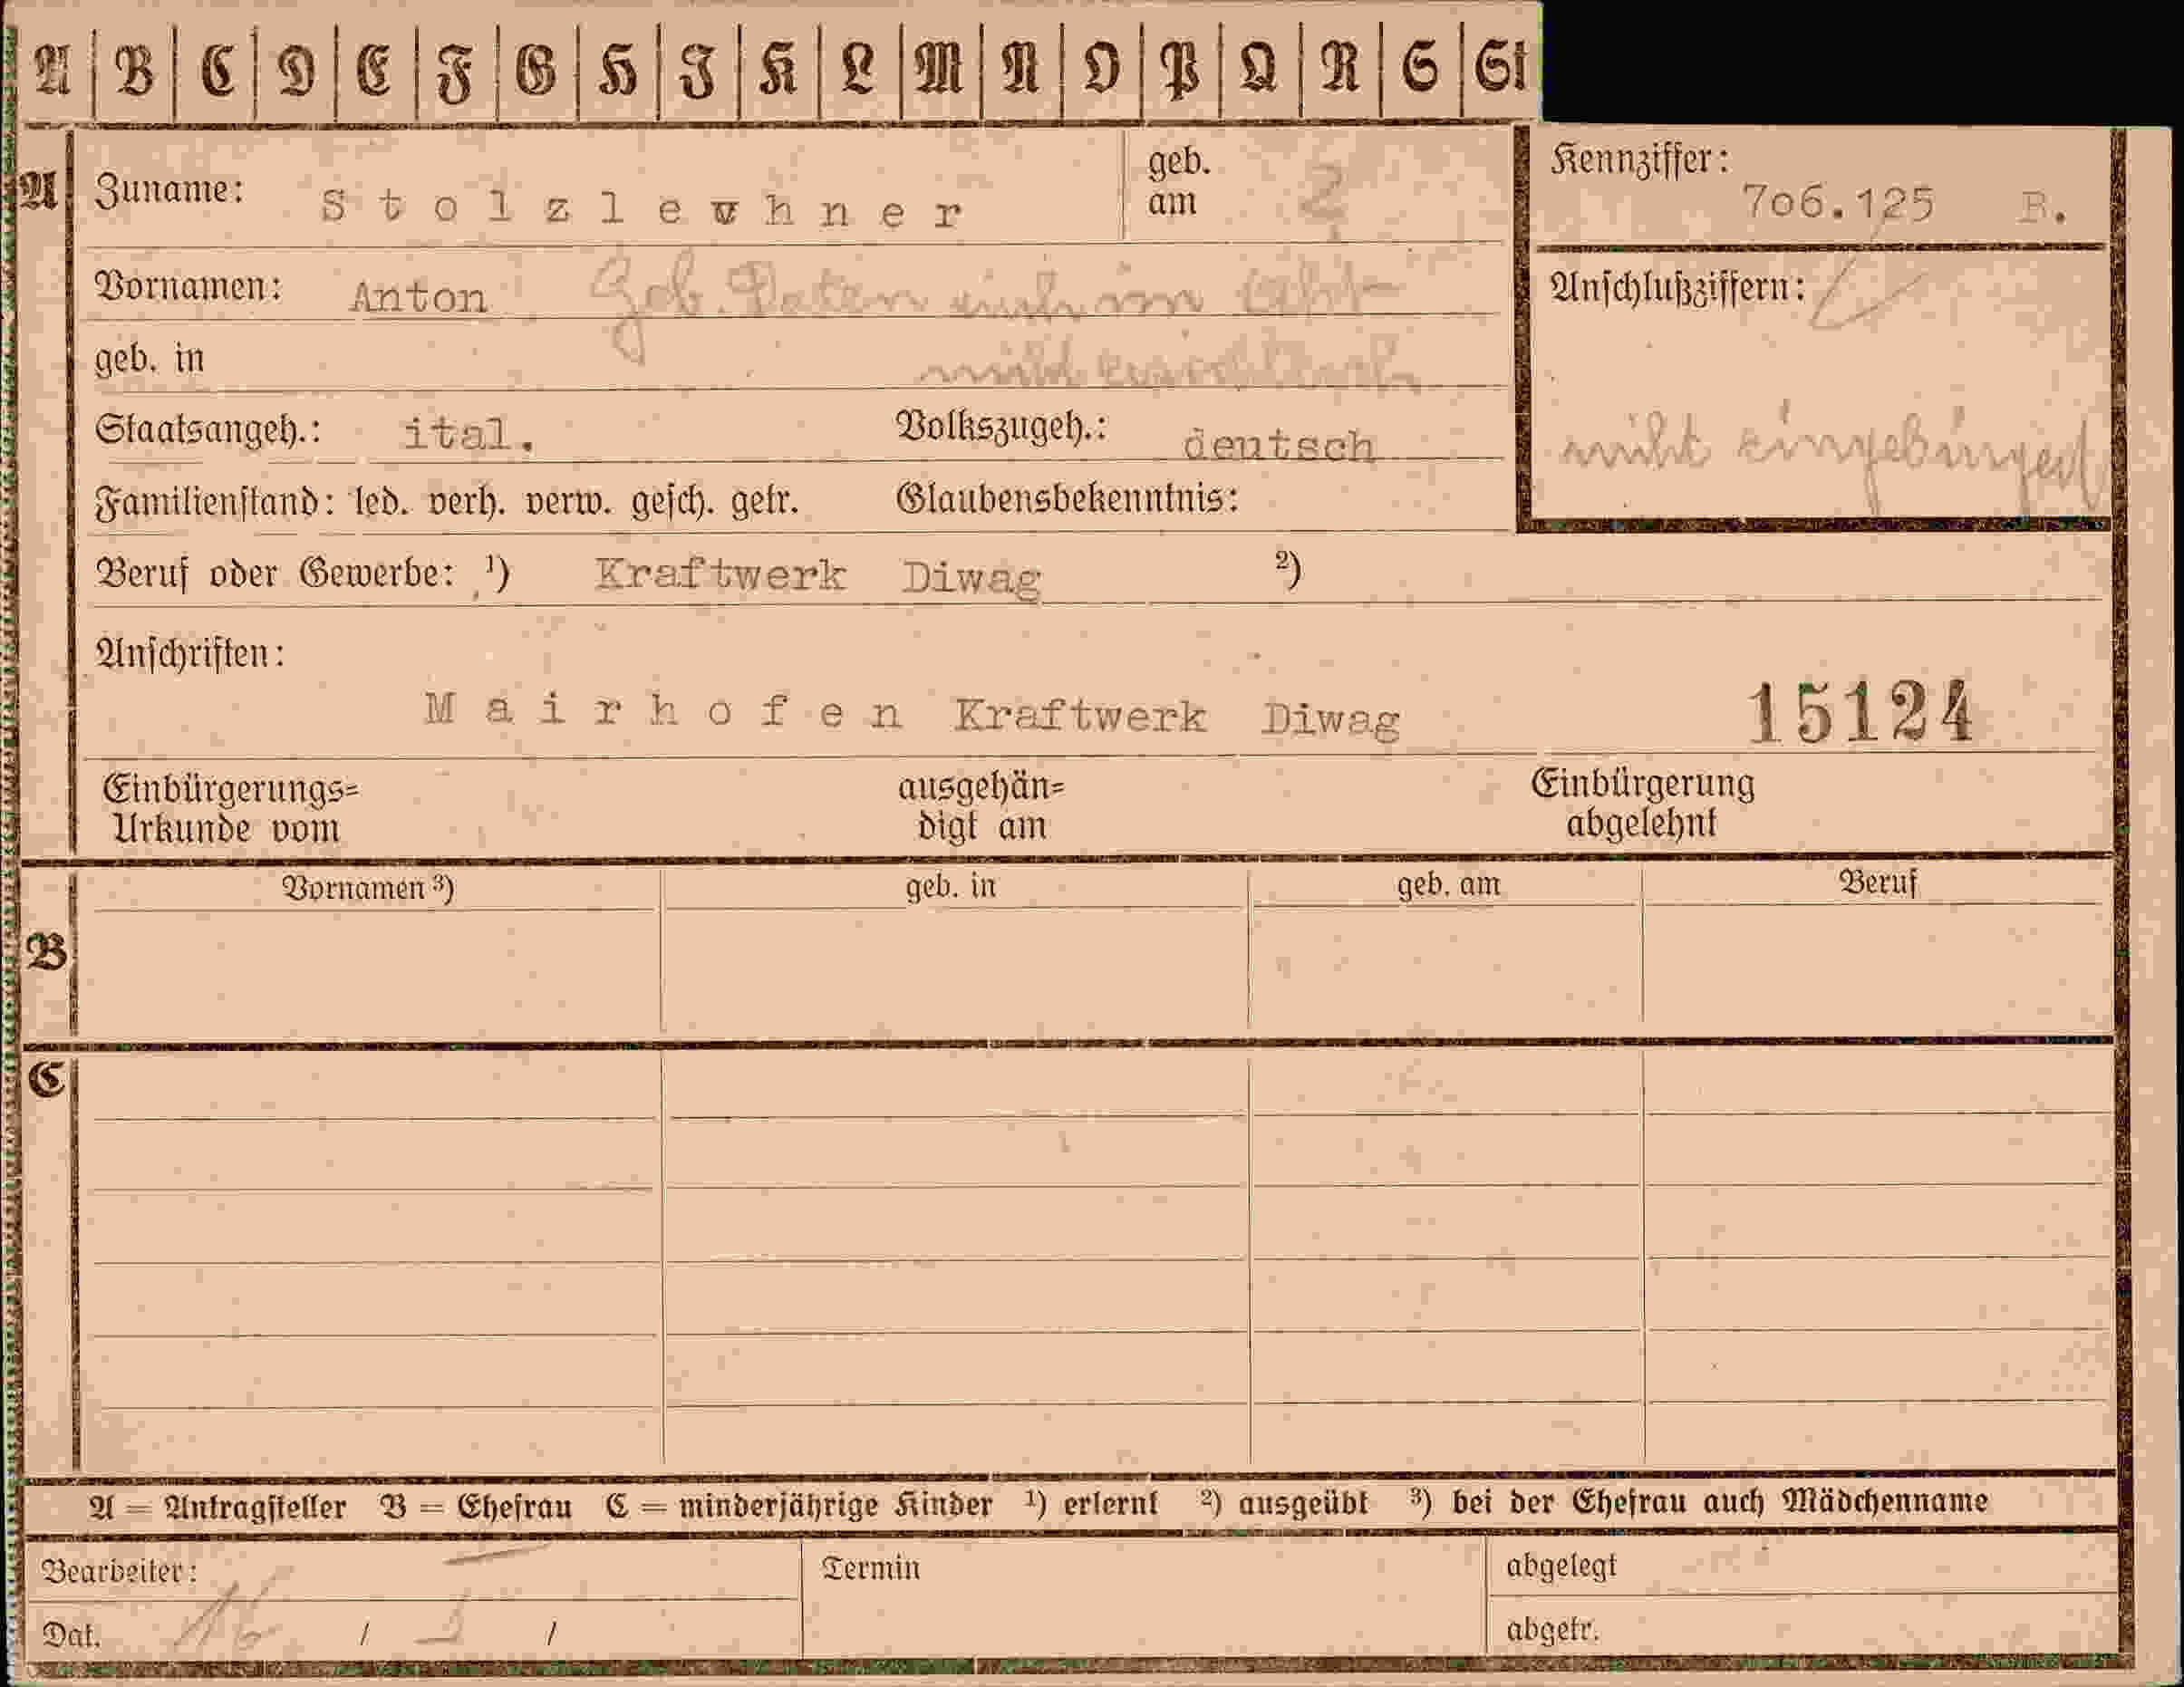 A B C D E F G H I K L M N O P Q R S St
A Zuname: Stolzlewhner geb. am ? Kennziffer: 7o6.125 B.
Vornamen: Anton Geb. Daten auch im Akt Anschlußziffern:
geb. in nicht ersichtlich
Staatsangeh.: ital. Volkszugeh.: deutsch nicht eingebürgert
Familienstand: led. verh. verw. gesch. getr. Glaubensbekenntnis:
Beruf oder Gewerbe: ¹) Kraftwerk Diwag ²)
Anschriften:
Mairhofen Kraftwerk Diwag 15124
Einbürgerungs= ausgehän= Einbürgerung
Urkunde vom digt am abgelehnt
Vornamen ³) geb. in geb. am Beruf
B
C
A = Antragsteller B = Ehefrau C = minderjährige Kinder ¹) erlernt ²) ausgeübt ³) bei der Ehefrau auch Mädchenname
Bearbeiter: Termin abgelegt
Dat. 16 / / abgetr.